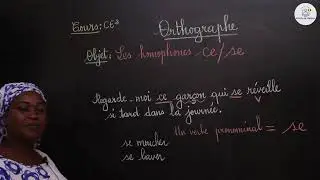 Cours: CE2
Orthographe
Objet: Les homophones ce/se
Regarde-moi ce garçon qui se réveille
si tard dans la journée.
Un verbe pronominal = se
se moucher
se laver